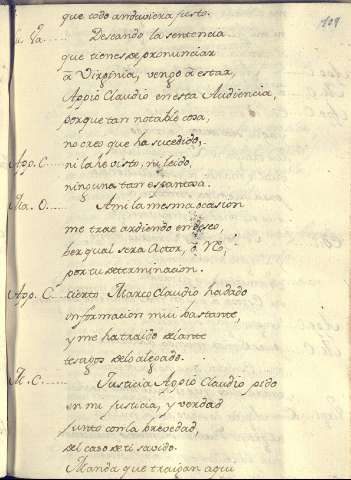 que todo anduviera justo.
109
Deseando la sentencia
que tienes de pronunciar
â Virginia, vengo â estar,
Appio Claudio en esta Audiencia,
porque tan notable cosa,
no creo que ha sucedido,
App. C..... ni la he visto, ni leido,
ninguna tan espantosa.
A mi la mesma ocasion
me trae ardiendo en deseo
ber qual sera Actor, ô Reo,
por tu determinacion.
App. C..... cierto Marco Claudio ha dado
informacion mui bastante,
y me ha traido delante
testigos de lo alegado.
M. C...... Justicia Appio Claudio pido
en mi justicia, y verdad
junto con la brevedad,
del caso de ti savido.
Manda que traigan aqui